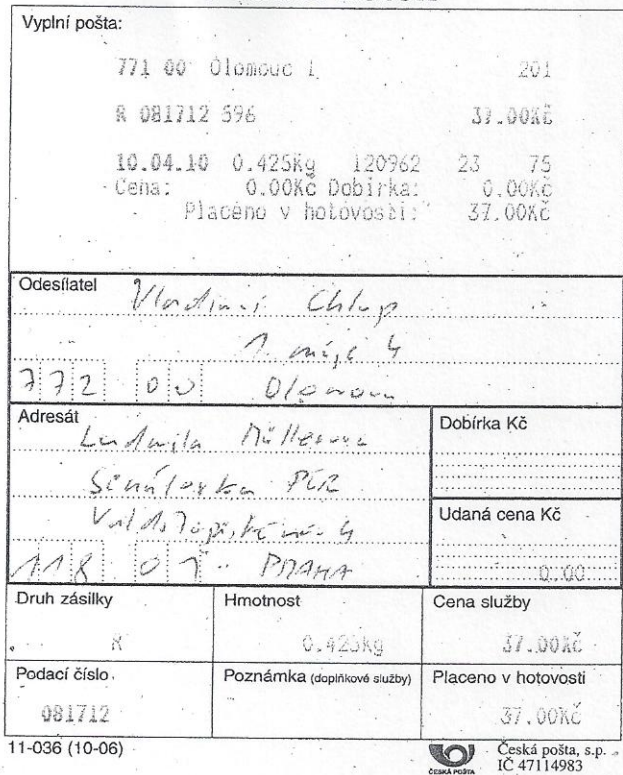 Vyplní pošta:
771 00 Olomouc 1 201
R 081712 596 37.00Kč
10.04.10 0.425kg 120962 23 75
Cena: 0.00Kč Dobírka: 0.00Kč
Placeno v hotovosti: 37.00Kč
Odesílatel
Vladimír Chlup
1. máje 4
772 00 Olomouc
Adresát
Ludmila Müllerová
Senátorka PČR
Vald. 4
118 01 PRAHA
Dobírka Kč
Udaná cena Kč
0.00
Druh zásilky
R
Hmotnost
0.425kg
Cena služby
37.00Kč
Podací číslo
081712
Poznámka (doplňkové služby)
Placeno v hotovosti
37.00Kč
11-036 (10-06)
ČESKÁ POŠTA
Česká pošta, s.p.
IČ 47114983